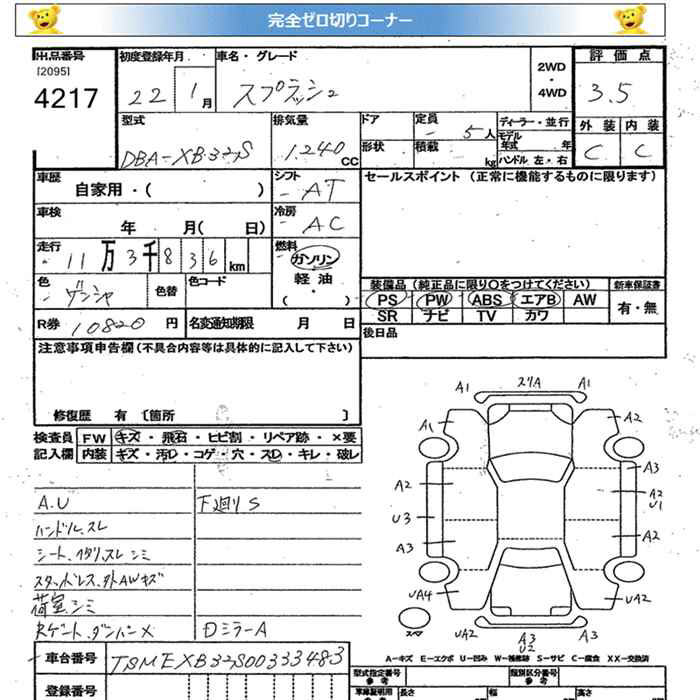 完全ゼロ切りコーナー
出品番号 初度登録年月 車名・グレード 2WD・4WD 評価点
[2095]
4217 22 1月 スプラッシュ 3.5
型式 排気量 ドア 定員 5人 ディーラー・並行 外装 内装
DBA-XB32S 1.240cc 形状 積載 kg モデル年式 年 C C
ハンドル 左・右
車歴 自家用・( ) シフト AT セールスポイント(正常に機能するものに限ります)
車検 年 月( 日) 冷房 AC
走行 11万3千836km 燃料 ガソリン
軽油・( )
色 ゲンシャ 色替 色コード 装備品(純正品に限り○をつけてください) 新車保証書
PS PW ABS エアB AW 有・無
SR ナビ TV カワ
R券 10820円 名変通知期限 月 日 後日品
注意事項申告欄(不具合内容等は具体的に記入して下さい)
修復歴 有〔箇所 〕
検査員 FW キズ・飛石・ヒビ割・リペア跡・×要
記入欄 内装 キズ・汚レ・コゲ・穴・スレ・キレ・破レ
A.U 下廻りS
ハンドル、スレ
シート、ヘタリ、スレ、シミ
スタッドレス、外AWキズ
荷室、シミ
Rゲート、ダンパーX DミラーA
A1 スリA A1
A1 A2
A2 A3
A2
U1
U3 A2
A3
UA4 UA2
スペ UA2 A3 UA2
U2
A-キズ E-エクボ U-凹み W-補修跡 S-サビ C-腐食 XX-交換済
車台番号 TSMEXB32S00333483
型式指定番号 類別区分番号
参考 参考
登録番号 車庫証明用 長さ 幅 高さ
参考